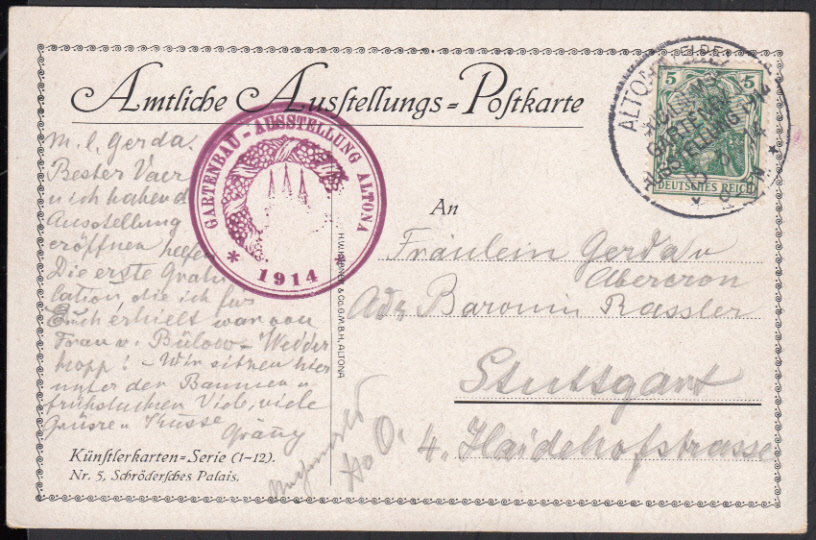 Amtliche Ausstellungs-Postkarte
M. l. Gerda.
Bester Vaer
u ich haben d
Ausstellung
eröffnen helfen
Die erste Gratu
lation, die ich für
Euch erhielt war von
Frau v. Bülow-Wedder
kopp! - Wir sitzen hier
unter den Bäumen u
frühstücken Viele, viele
Grüsse u Küsse
Gränny
Künstlerkarten-Serie (1-12).
Nr. 5, Schrödersches Palais.
GARTENBAU-AUSSTELLUNG ALTONA
* 1914 *
H.W. & CO. G.M.B.H. ALTONA
ALTONA (ELBE)
GARTENB.
AUSSTELLUNG
5 5
DEUTSCHES REICH
An
Fräulein Gerda v
Abercron
Adr Baronin Rassler
Stuttgart
4. Haidehofstrasse